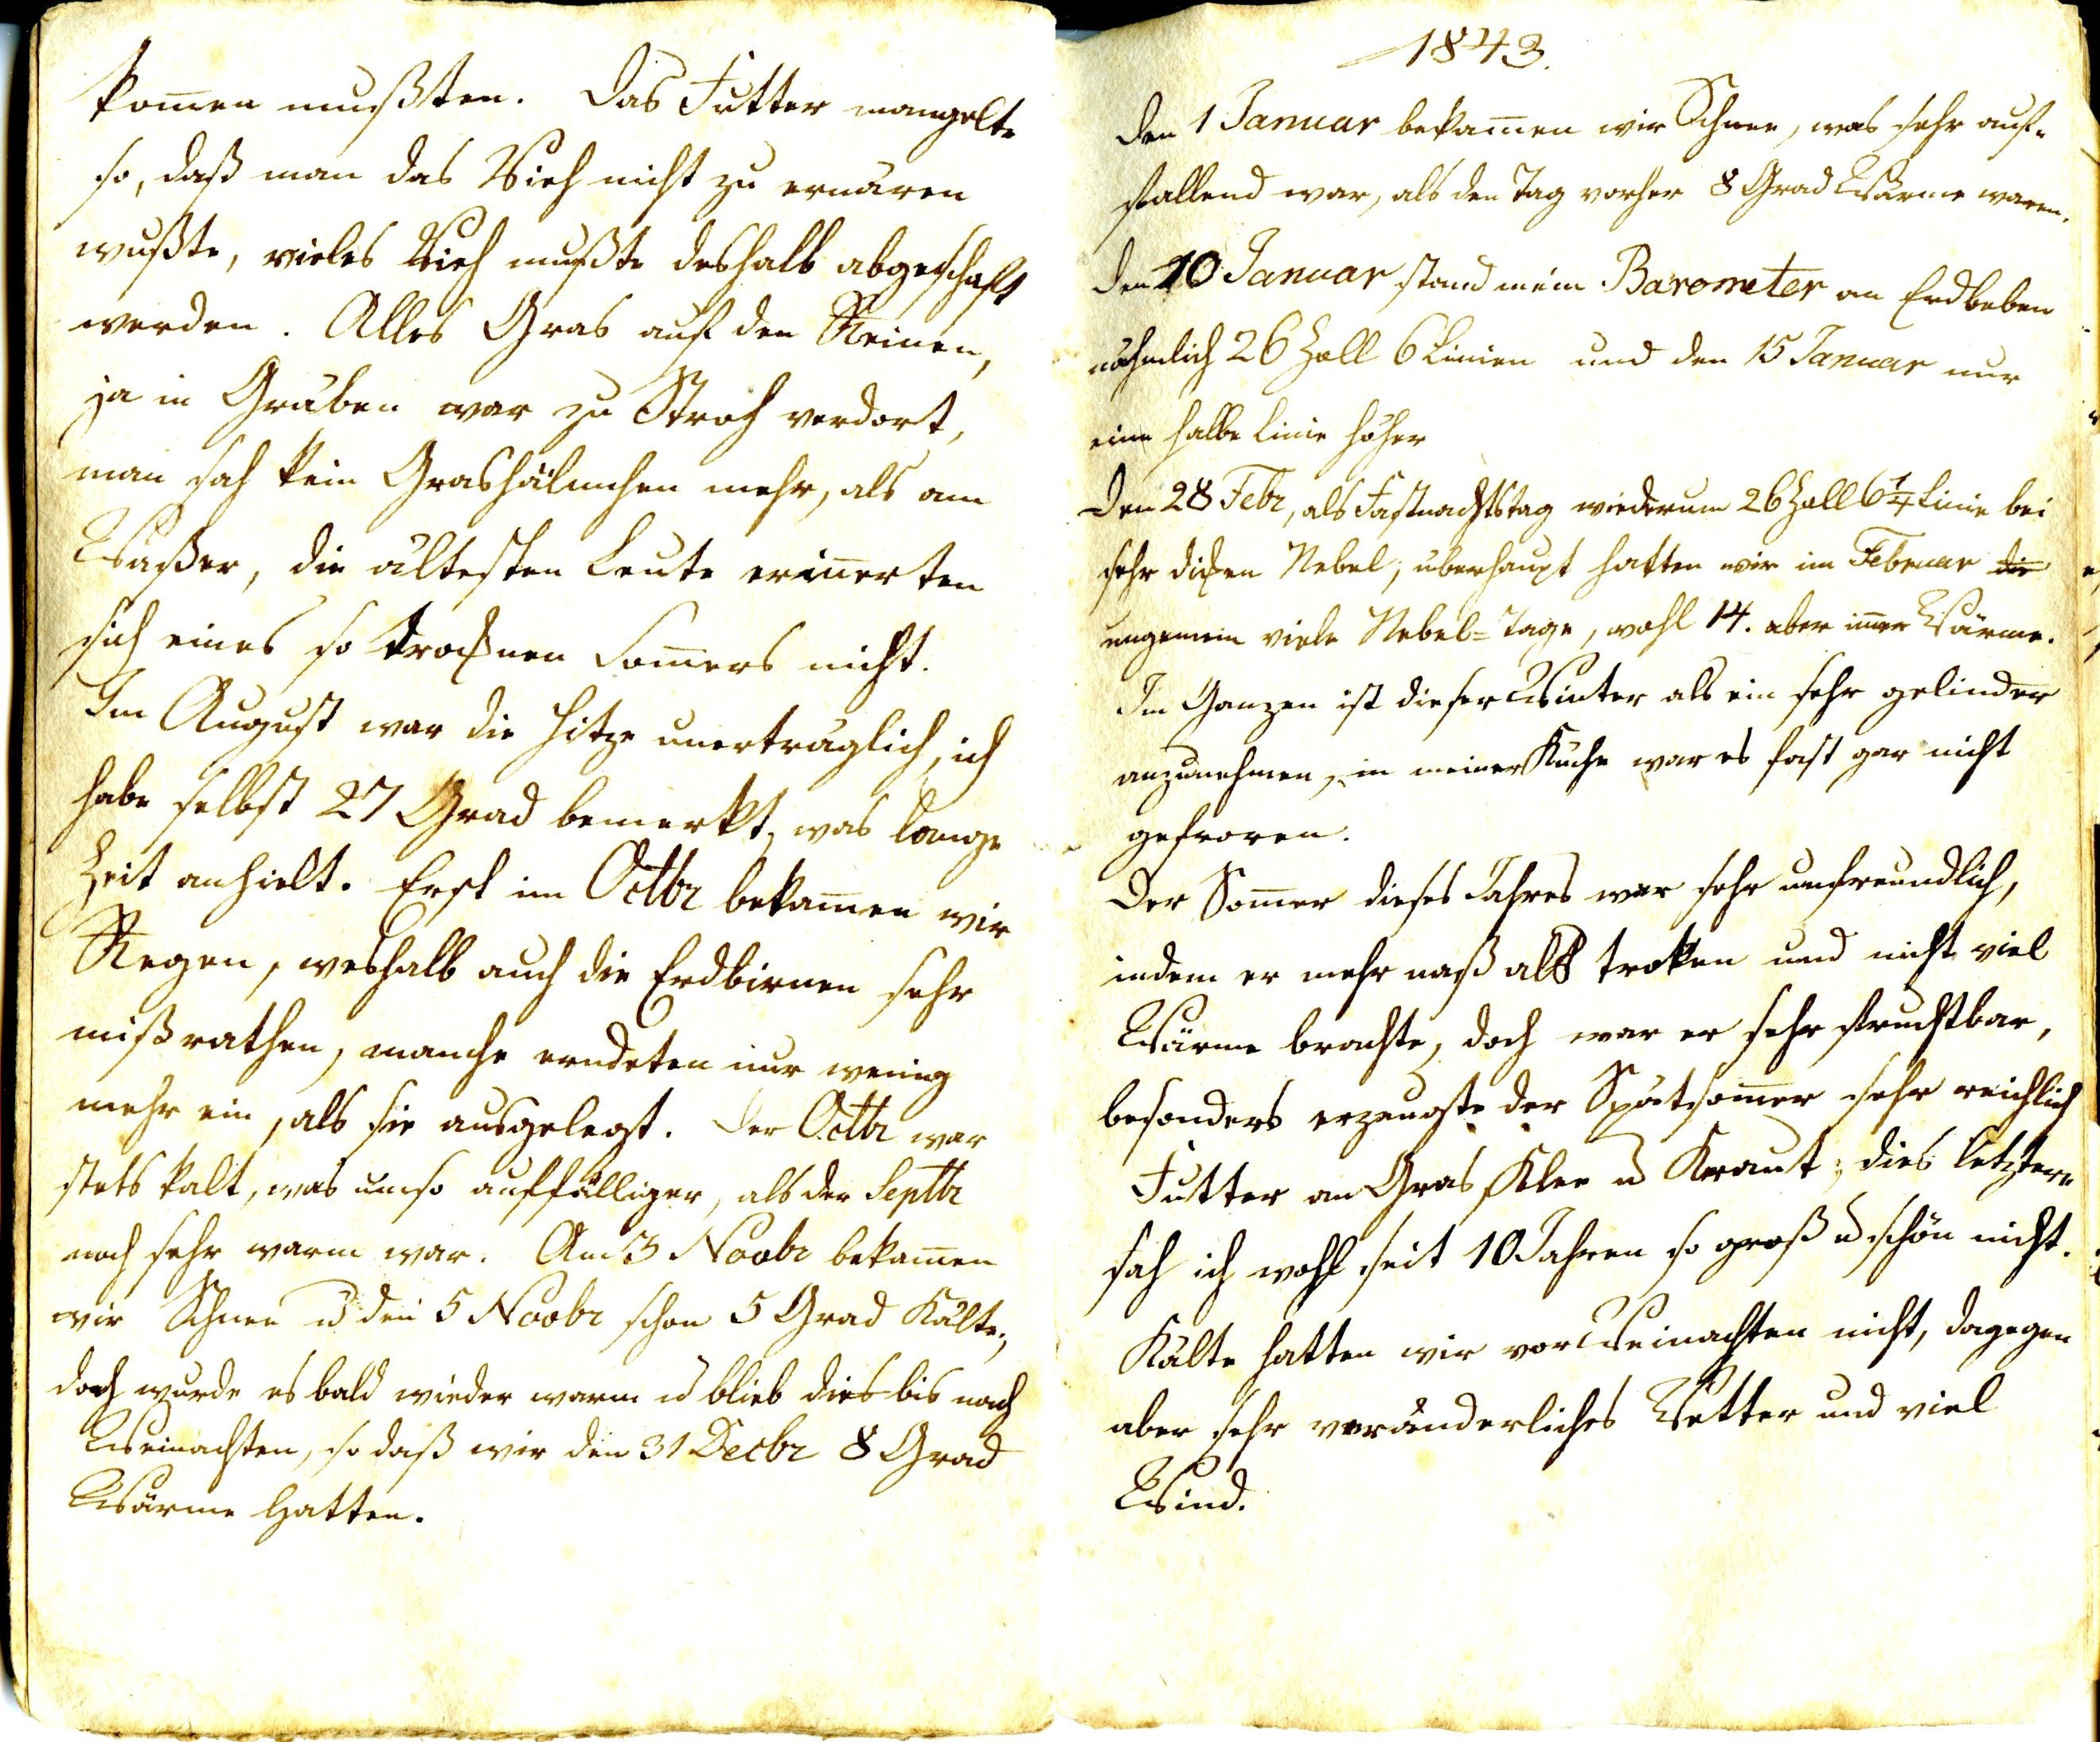 kom̅en mußten. Das Futter mangelte
so, daß man das Vieh nicht zu ernären
wußte, vieles Vieh mußte deshalb abgeschaft
werden. Alles Gras auf den Reinen,
ja in Gräben war zu Stroh verdort,
man sah kein Grashälmchen mehr, als am
Waßer, die ältesten Leute erin̅erten
sich eines so trocknen Som̅ers nicht.
Im August war die Hitze unerträglich, ich
habe selbst 27 Grad bemerkt, was lange
Zeit anhielt. Erst im Octbr bekam̅en wir
Regen, weshalb auch die Erdbirnen sehr
mißrathen, manche erndeten nur wenig
mehr ein, als sie ausgelegt. Der Octbr war
stets kalt, was umso auffälliger, als der Septbr
noch sehr warm war. Am 3 Novbr bekam̅en
wir Schnee u den 5 Novbr schon 5 Grad Kälte,
doch wurde es bald wieder warm u blieb dies bis nach
Weinachten, so daß wir den 31 Decbr 8 Grad
Wärme hatten.
1843.
Den 1 Januar bekam̅en wir Schnee, was sehr auf-
fallend war, als den Tag vorher 8 Grad Wärme waren.
Den 10 Januar stand mein Barometer an Erdbeben
nähmlich 26 Zoll 6 Linien und den 15 Januar nur
eine halbe Linie höher
Den 28 Febr, als Fastnachtstag wiederum 26 Zoll 6 1/4 Linie bei
sehr dicken Nebel, überhaupt hatten wir im Februar die
ungemein viele Nebel=Tage, wohl 14. aber im̅er Wärme.
Im Ganzen ist dieser Winter als ein sehr gelinder
anzunehmen, in meiner Küche war es fast gar nicht
gefroren.
Der Som̅er dieses Jahres war sehr unfreundlich,
indem er mehr naß als troken und nicht viel
Wärme brachte, doch war er sehr fruchtbar,
besonders erzeugte der Spätsom̅er sehr reichlich
Futter an Gras, Klee u Kraut; dies letztere
sah ich wohl seit 10 Jahren so groß u schön nicht.
Kälte hatten wir vor Weinachten nicht, dagegen
aber sehr veränderliches Wetter und viel
Wind.